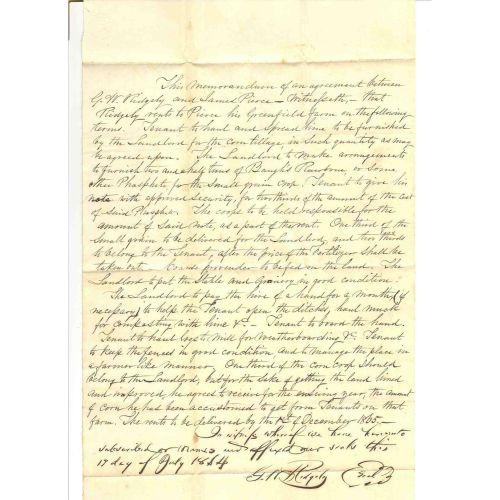 This Memorandum of an agreement between
G. W. Ridgely and James Pierce – Witnesseth, – that
Ridgely rents to Pierce his Greenfield farm on the following
terms. Tenant to haul and spread lime to be furnished
by the Landlord for the corn tillage in such quantity as may
be agreed upon. The Landlord to make arrangements
to furnish two and half tons of Baugh's Rawbone or some
other Phosphate for the small grain crop. Tenant to give his
note with approved security, for two thirds of the amount of the cost
of said Phosphe. The crops to be held responsible for the
amount of said note, as a part of the rent. One third of the
small grain to be delivered for the Landlord, and two thirds
to belong to the Tenant, after the price of the Fertilizer shall be
taken out. Coarse provender to be fed on the land. The
Landlord to put the Stable and Granery in good condition.
The Landlord to pay the hire of a hand for a month (if
necessary) to help the Tenant open the ditches, haul muck
for composting with lime &c – Tenant to board the hand.
Tenant to haul logs to Mill for weatherboarding &c. Tenant
to keep the fences in good condition and to manage the place in
a farmer like manner. One third of the corn crop should
belong to the Landlord, but for the sake of getting the land limed
and improved, he agrees to receive for the ensuing year, the amount
of corn he has been accustomed to get from Tenants on that
farm. The rents to be delivered by the 1st of December 1865. –
In witness whereof we have hereunto
subscribed our Names and affixed our seals this
17 day of July 1864
G. W. Ridgely Seal